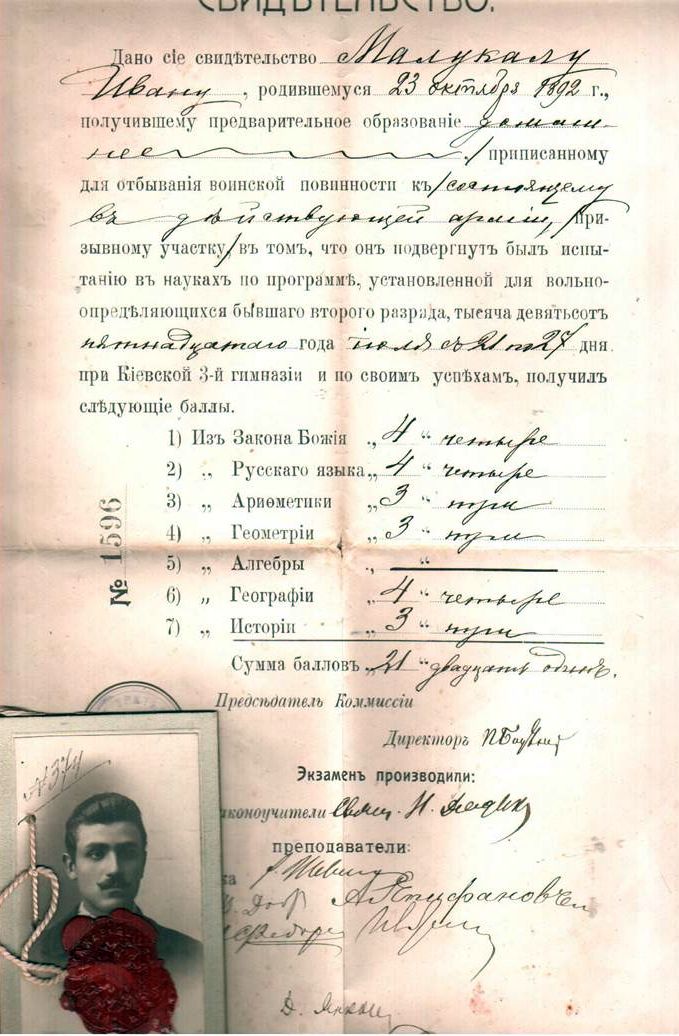 СВИДѢТЕЛЬСТВО.
Дано сіе свидѣтельство Малукалу
Ивану, родившемуся 23 октября 1892 г.,
получившему предварительное образованіе домаш
нее, приписанному
для отбыванія воинской повинности къ/состоящему
въ дѣйствующей арміи,/При-
зывному участку/въ томъ, что онъ подвергнутъ былъ испы-
танію въ наукахъ по программѣ, установленной для вольно-
опредѣляющихся бывшаго второго разряда, тысяча девятьсотъ
пятнадцатаго года іюля съ 21 по 27 дня
при Кіевской 3-й гимназіи и по своимъ успѣхамъ, получилъ
слѣдующіе баллы.
1) Изъ Закона Божія „4“ четыре
2) „ Русскаго языка „4“ четыре
3) „ Ариѳметики „3“ три
4) „ Геометріи „3“ три
5) „ Алгебры „ “
6) „ Географіи „4“ четыре
7) „ Исторіи „3“ три
Сумма балловъ „21“ двадцать одинъ.
№ 1596
Предсѣдатель Коммиссіи
Директоръ
Экзаменъ производили:
аконоучители Свящ. Н.
преподаватели: